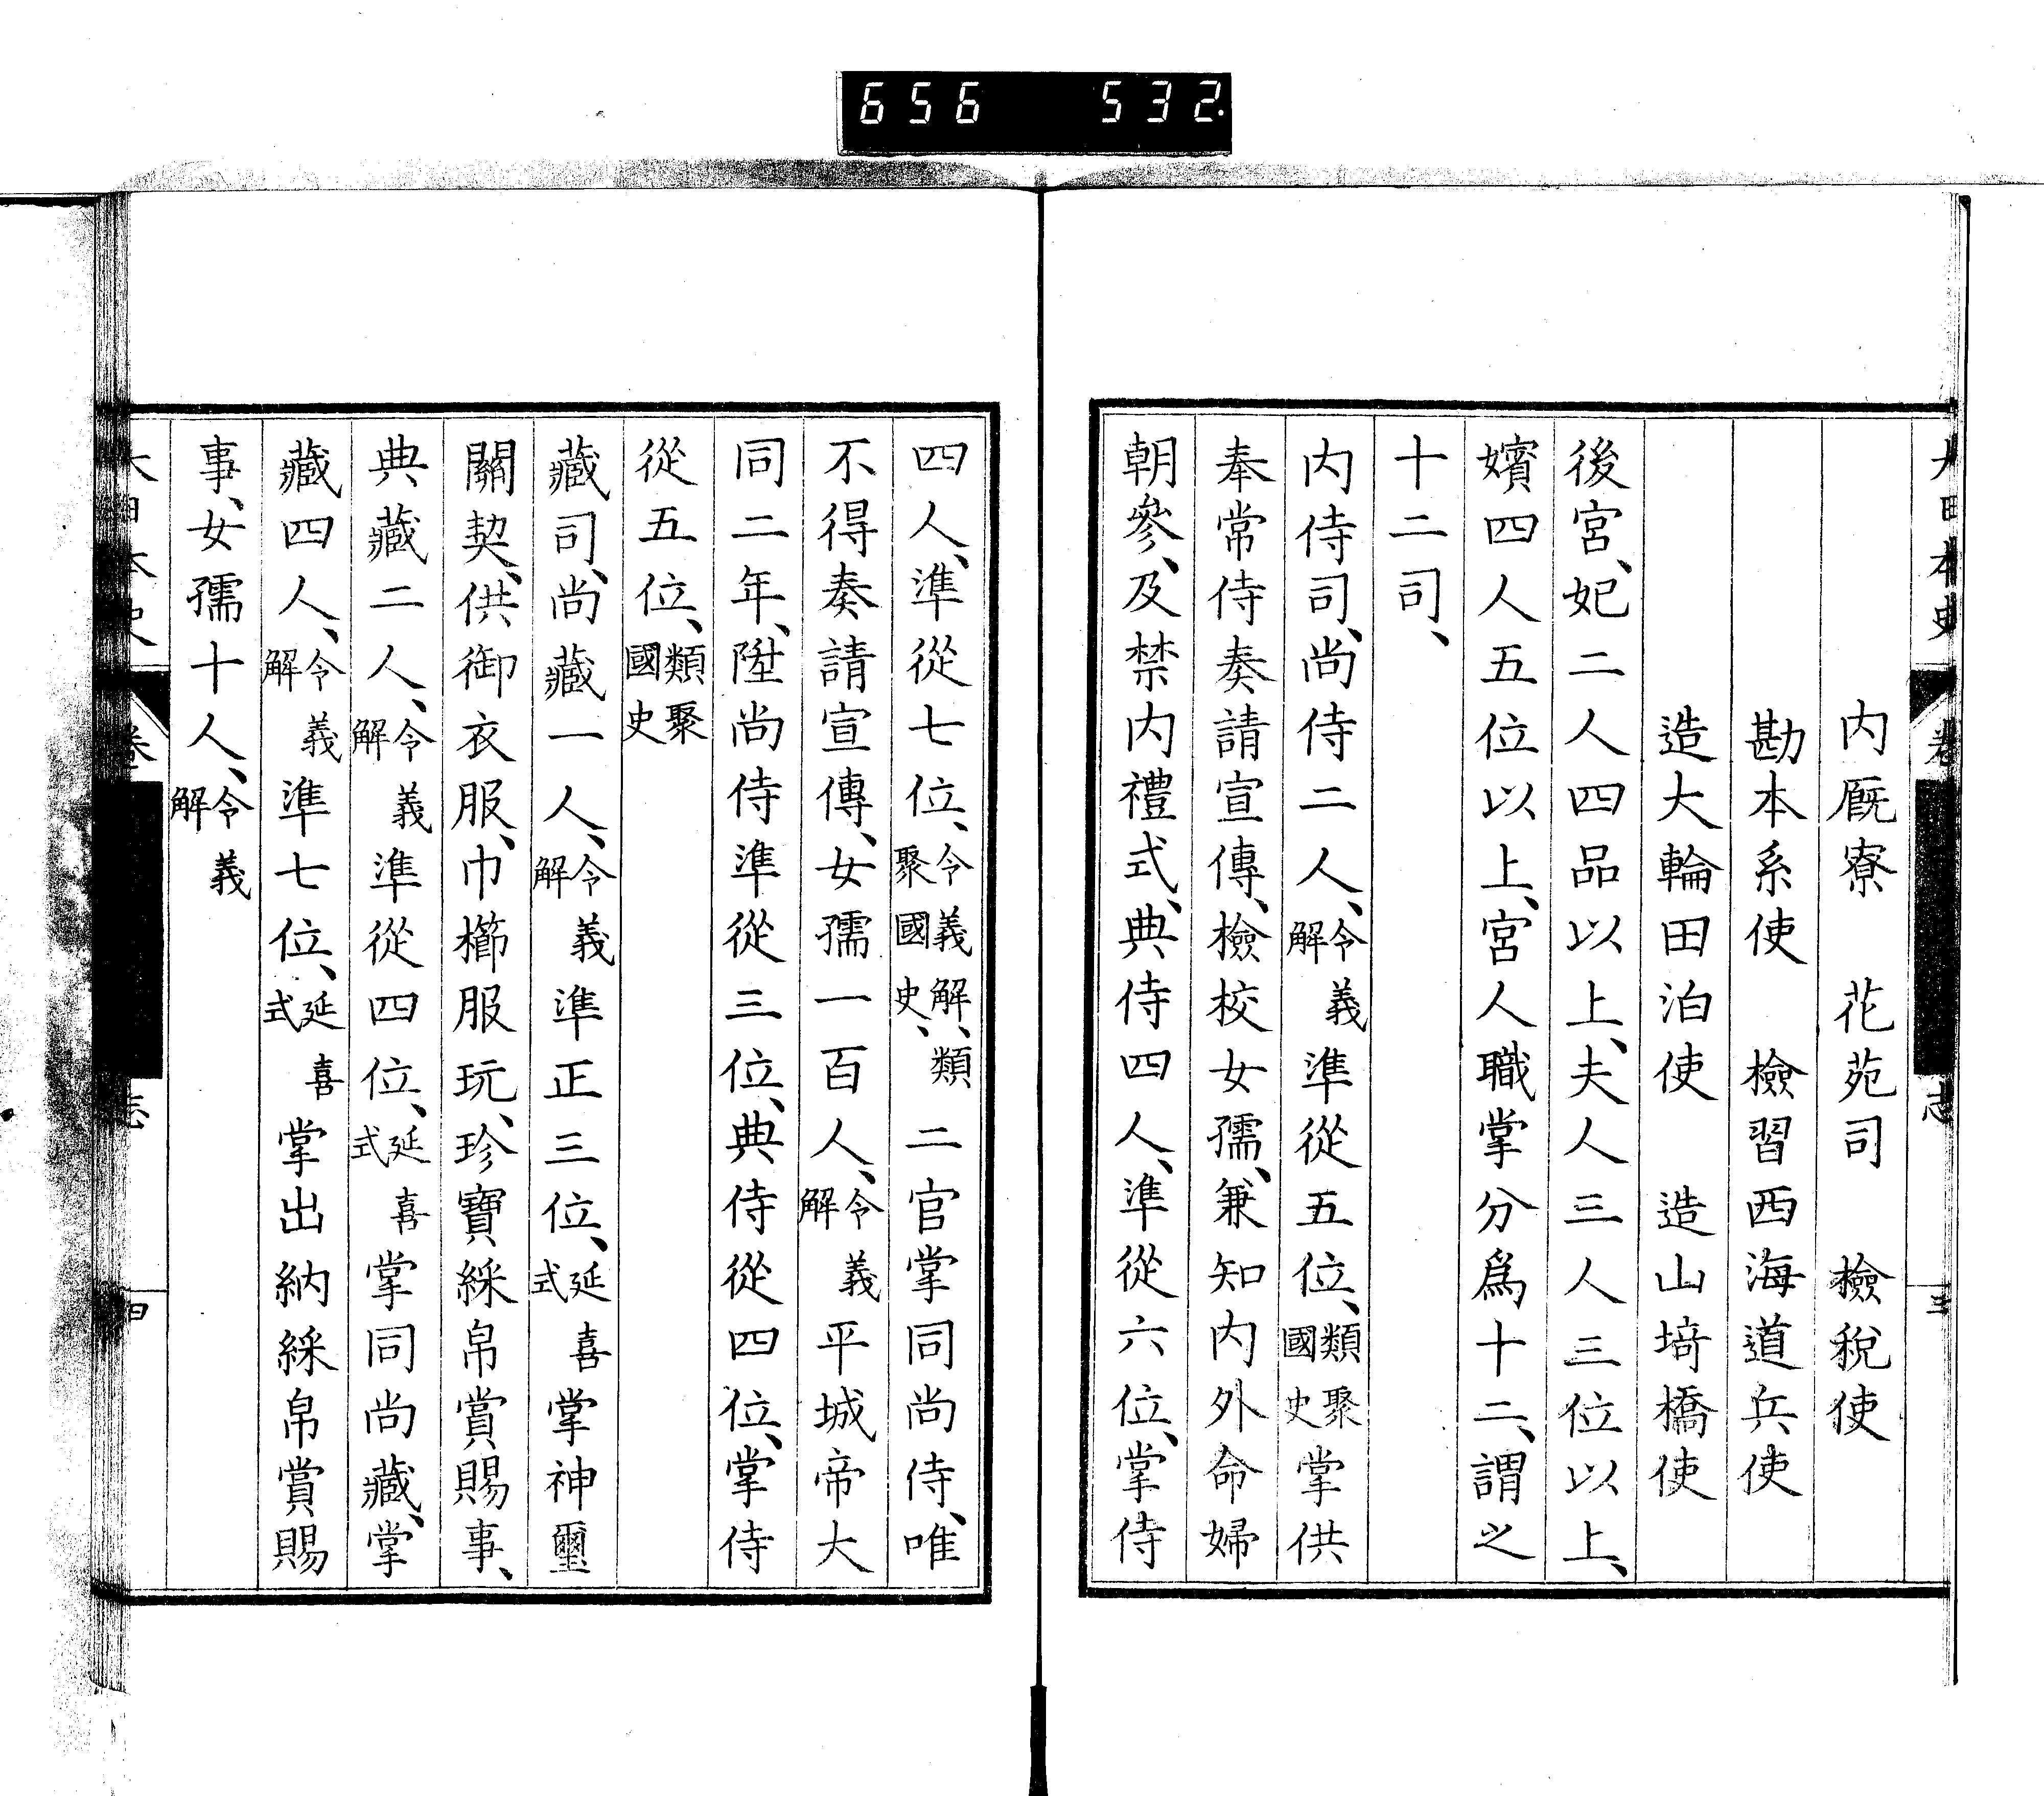 656 532.
大日本史 卷 志 三
内厩寮 花苑司 檢稅使
勘本系使 檢習西海道兵使
造大輪田泊使 造山埼橋使
後宮、妃二人四品以上、夫人三人三位以上、
嬪四人五位以上、宮人職掌分爲十二、謂之
十二司、
内侍司、尚侍二人、令義解準從五位、類聚國史掌供
奉常侍奏請宣傳、檢校女孺、兼知内外命婦
朝參、及禁内禮式、典侍四人、準從六位、掌侍
四人、準從七位、令義解、類聚國史、二官掌同尚侍、唯
不得奏請宣傳、女孺一百人、令義解平城帝大
同二年、陞尚侍準從三位、典侍從四位、掌侍
從五位、類聚國史
藏司、尚藏一人、令義解準正三位、延喜式掌神璽
關契、供御衣服、巾櫛服玩、珍寶綵帛賞賜事、
典藏二人、令義解準從四位、延喜式掌同尚藏、掌
藏四人、令義解準七位、延喜式掌出納綵帛賞賜
事、女孺十人、令義解
大日本史 卷 志 四